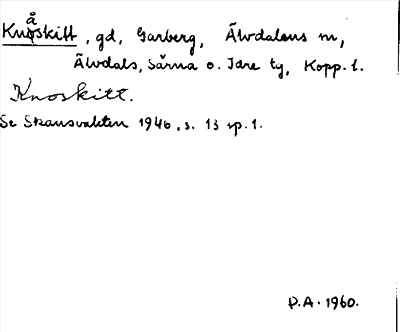 Knåskitt, gd, Garberg, Älvdalens m,
Älvdals, Särna o. Idre tg, Kopp. l.
Knoskitt.
Se Skansvakten 1946, s. 13 sp. 1.
P.A. 1960.